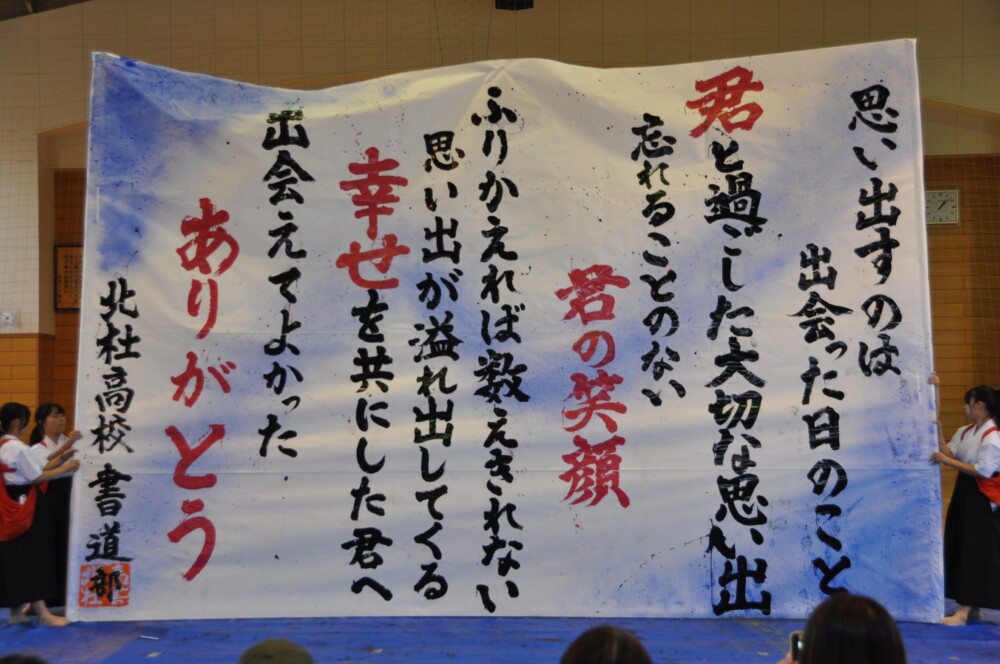 思い出すのは
出会った日のこと
君と過ごした大切な思い出
忘れることのない
君の笑顔
ふりかえれば数えきれない
思い出が溢れ出してくる
幸せを共にした君へ
出会えてよかった
ありがとう
北杜高校書道部